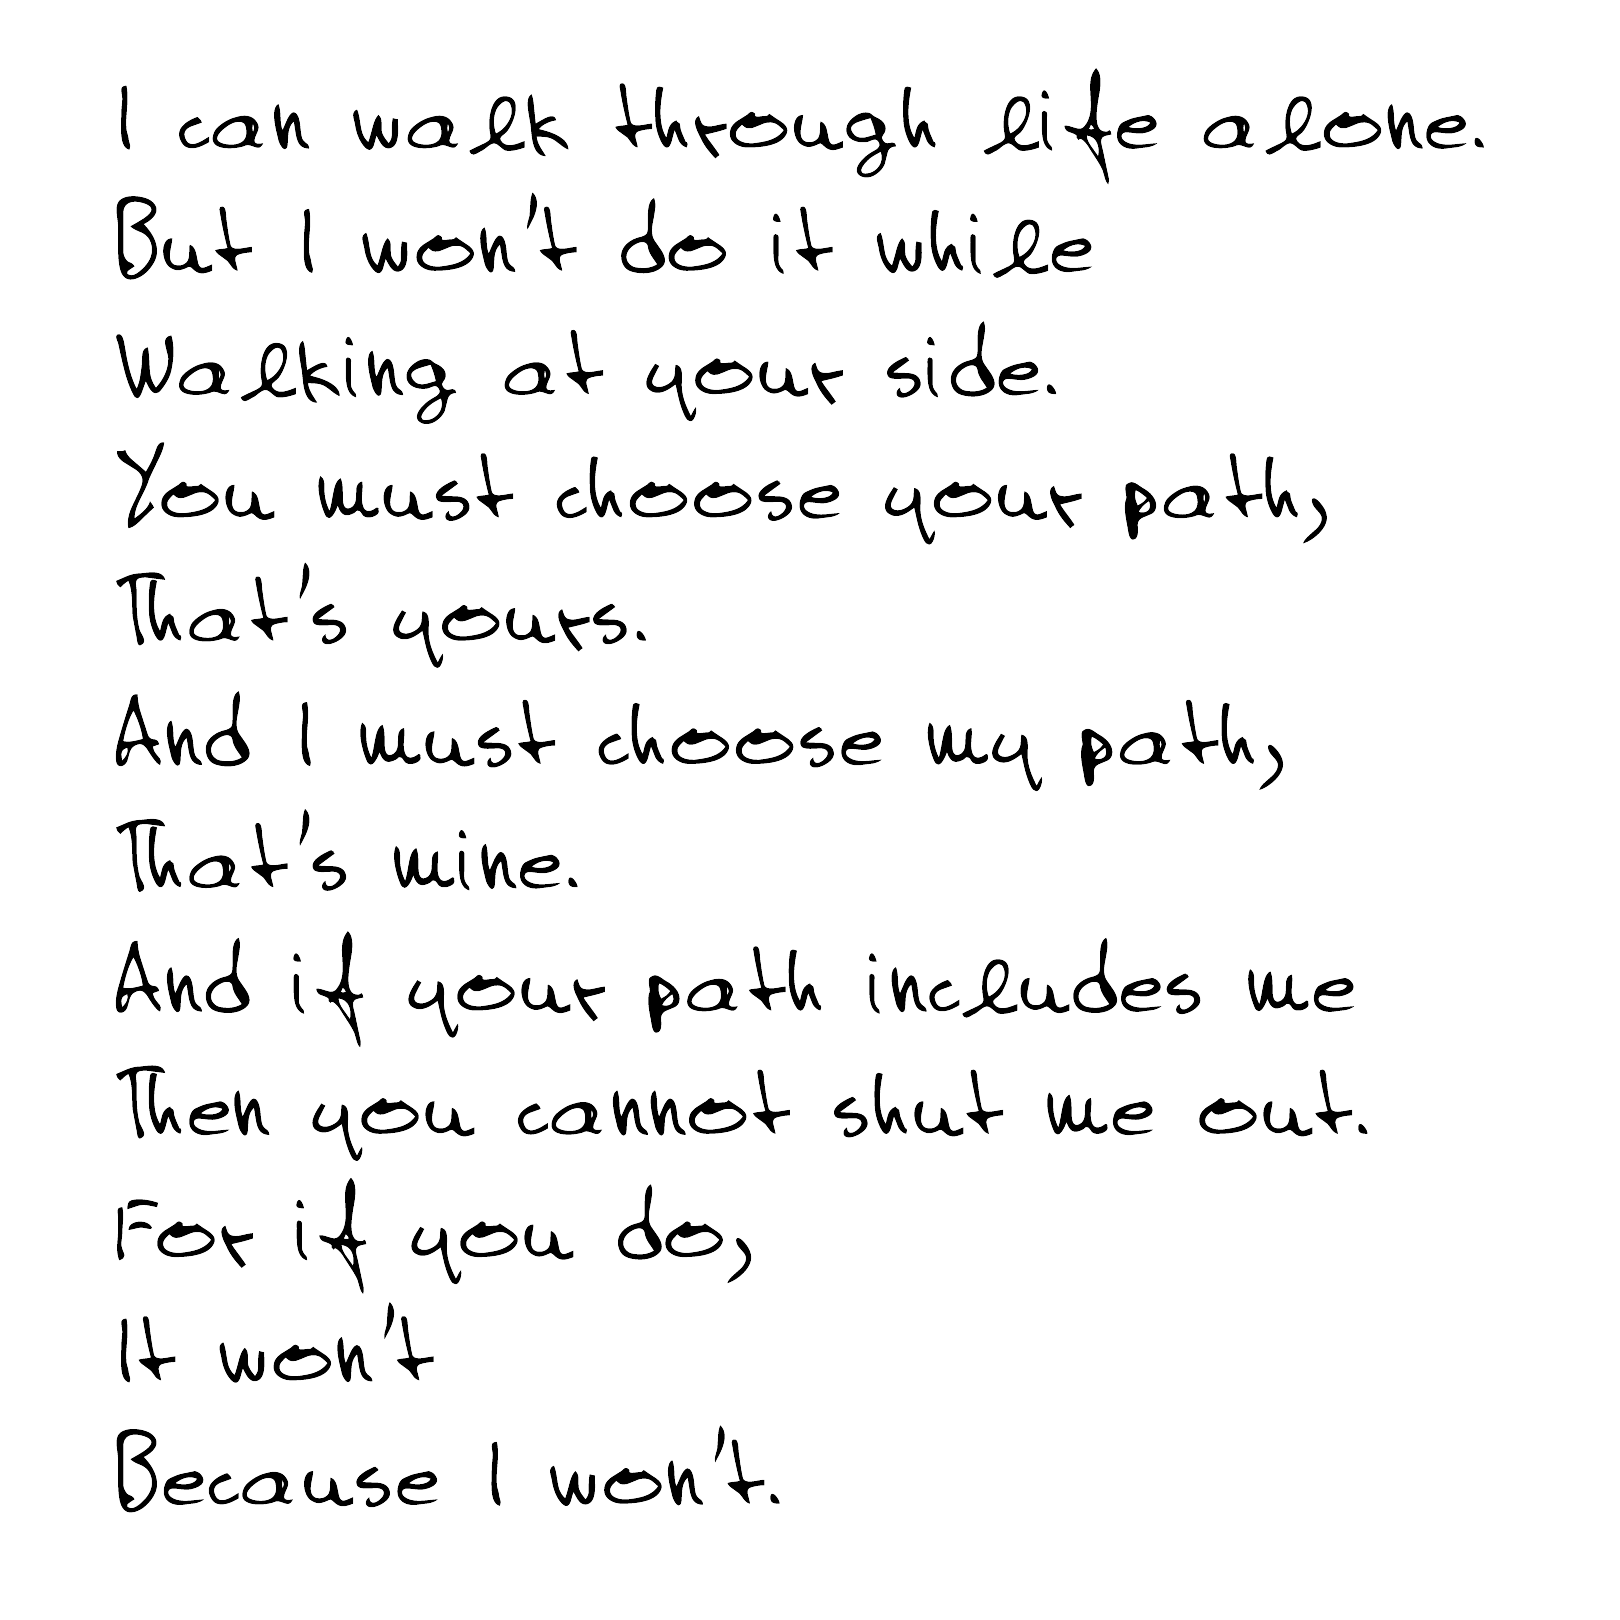 I can walk through life alone.
But I won't do it while
Walking at your side.
You must choose your path,
That's yours.
And I must choose my path,
That's mine.
And if your path includes me
Then you cannot shut me out.
For if you do,
It won't
Because I won't.